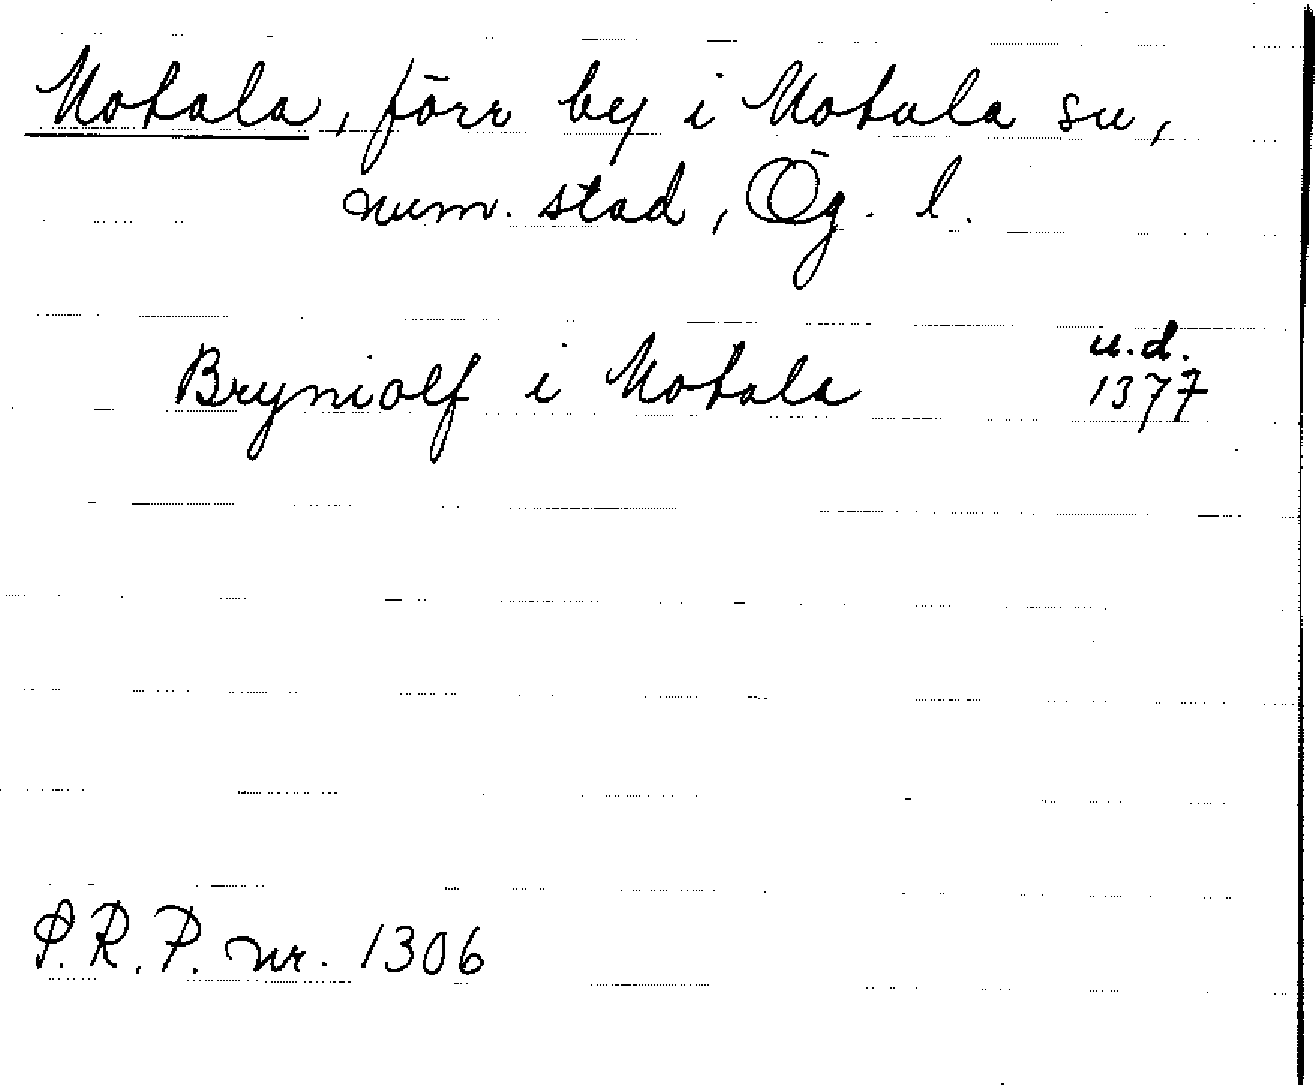 Motala, förr by i Motala sn,
num. stad, Ög. l.
Bryniolf i Motala u.d. 1377
S.R.P. nr. 1306